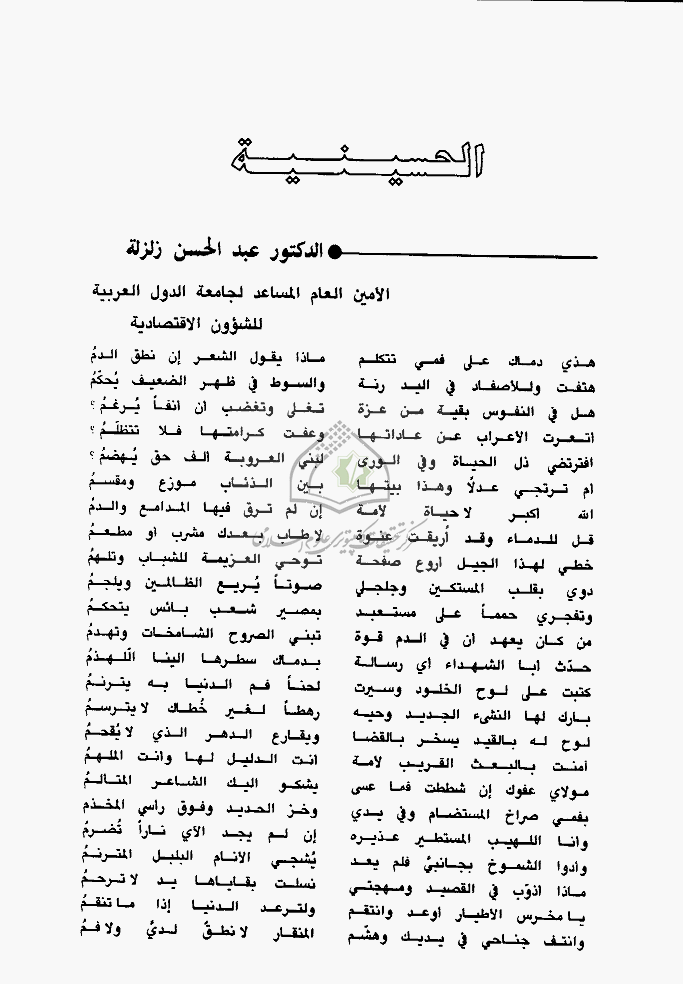 الحسينية
الدكتور عبد الحسن زلزلة
الأمين العام المساعد لجامعة الدول العربية
للشؤون الاقتصادية
هذي دماك على فمي تتكلم ماذا يقول الشعر إن نطق الدمُ
هتفت وللأصفاد في اليد رنة والسوط في ظهر الضعيف يُحكّمُ
هل في النفوس بقية من عزة تغلى وتغضب ان أنفاً يُرغمُ؟
أتعرت الأعراب عن عاداتها وعفت كرامتها فلا تتظلّمُ؟
افترتضي ذل الحياة وفي الورى لبني العروبة ألف حق يُهضمُ؟
ام ترتجي عدلاً وهذا بيتها بين الذئاب موزع ومقسمُ
الله اكبر لا حياة لأمة إن لم ترق فيها المدامع والدمُ
قل للدماء وقد أريقت عنوة لا طاب بعدك مشرب أو مطعمُ
خطي لهذا الجيل أروع صفحة توحي العزيمة للشباب وتلهمُ
دوي بقلب المستكين وجلجلي صوتاً يُريع الظالمين ويلجمُ
وتفجري حمماً على مستعبد بمصير شعب بائس يتحكمُ
من كان يعهد أن في الدم قوة تبني الصروح الشامخات وتهدمُ
حدّث أبا الشهداء أي رسالة بدماك سطرها الينا اللّهذمُ
كتبت على لوح الخلود وسيرت لحناً فم الدنيا به يترنمُ
بارك لها النشىء الجديد وحيه رهطاً لغير خُطاك لا يترسمُ
لوح له بالقيد يسخر بالقضا ويقارع الدهر الذي لا يُقحمُ
أمنت بالبعث القريب لأمة أنت الدليل لها وأنت الملهمُ
مولاي عفوك إن شططت فما عسى يشكو اليك الشاعر المتألمُ
بفمي صراخ المستضام وفي يدي وخز الحديد وفوق رأسي المخذم
وأنا اللهيب المستطير عذيره إن لم يجد الآي ناراً تُضرمُ
وأدوا الشموخ بجانبيَّ فلم يعد يُشجي الأنام البلبل المترنمُ
ماذا اذوّب في القصيد ومهجتي نسلت بقاياها يد لا ترحمُ
يا مخرس الأطيار أوعد وانتقم ولترعد الدنيا إذا ما تنقمُ
وانتف جناحي في يديك وهشّم المنقار لا نطقٌ لديَّ ولا فمُ